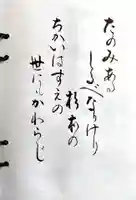 たのみある
しるべなりけり
杉あの
ちかいはすえの
世にもかわらじ